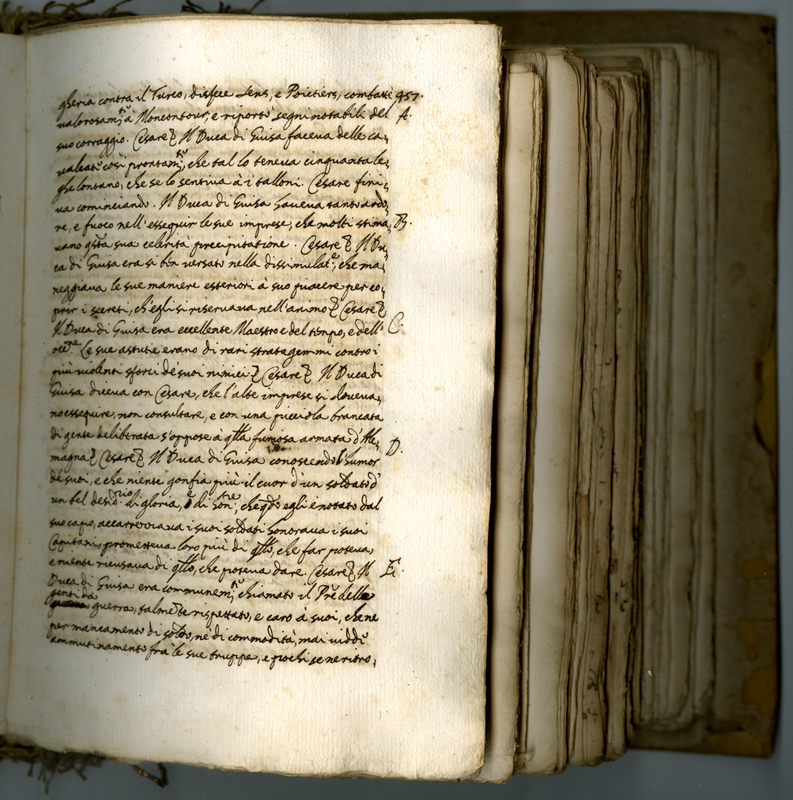 gheria contra il Turco, disfece Sens, e Poictiers, combatté 457.
valorosam.te à Moncontour, e riportò segni notabili del A.
suo corraggio. Cesare Il Duca di Guisa faceva delle ca,
valcate così prontam.te, che tal lo teneva cinquanta le,
ghe lontano, che se lo sentiva à i talloni. Cesare fini,
va cominciando. Il Duca di Guisa haveva tanto ardo,
re, e fuoco nell'esseguir le sue imprese, che molti stima, B.
vano q.sta sua celerità precipitatione. Cesare Il Du,
ca di Guisa era sì ben versato nella dissimulat.e, che ma,
neggiava le sue maniere esteriori à suo piacere per co,
prir i secreti, ch'egli si riservava nell'animo Cesare
Il Duca di Guisa era eccellente Maestro e del tempo, e dell' C.
Le sue astutie erano di rari stratagemmi contro i
più violenti sforci de' suoi nimici Cesare Il Duca di
Guisa diceva con Cesare, che l'alte imprese si doveva,
no esseguire, non consultare, e con una picciola brancata
di gente deliberata s'oppose à q.lla fumosa armata d'Ale,
magna Cesare Il Duca di Guisa conoscendo l'humor D.
de' suoi, e che niente gonfia più il cuor d'un soldato d'
un bel desid.rio di gloria, e di hon.re, che q.do egli è notato dal
suo capo, accarezzava i suoi soldati honorava i suoi
Capitani, prometteva loro più di q.llo, che far poteva,
e niente ricusava di q.llo, che poteva dare. Cesare Il E.
Duca di Guisa era communem.te chiamato il P.re delle
genti da
guerra, talmente rispettato, e caro à suoi, che ne
per mancamento di soldo, nè di commodità, mai viddi
ammutinamento frà le sue truppe, e pochi se ne ritro,